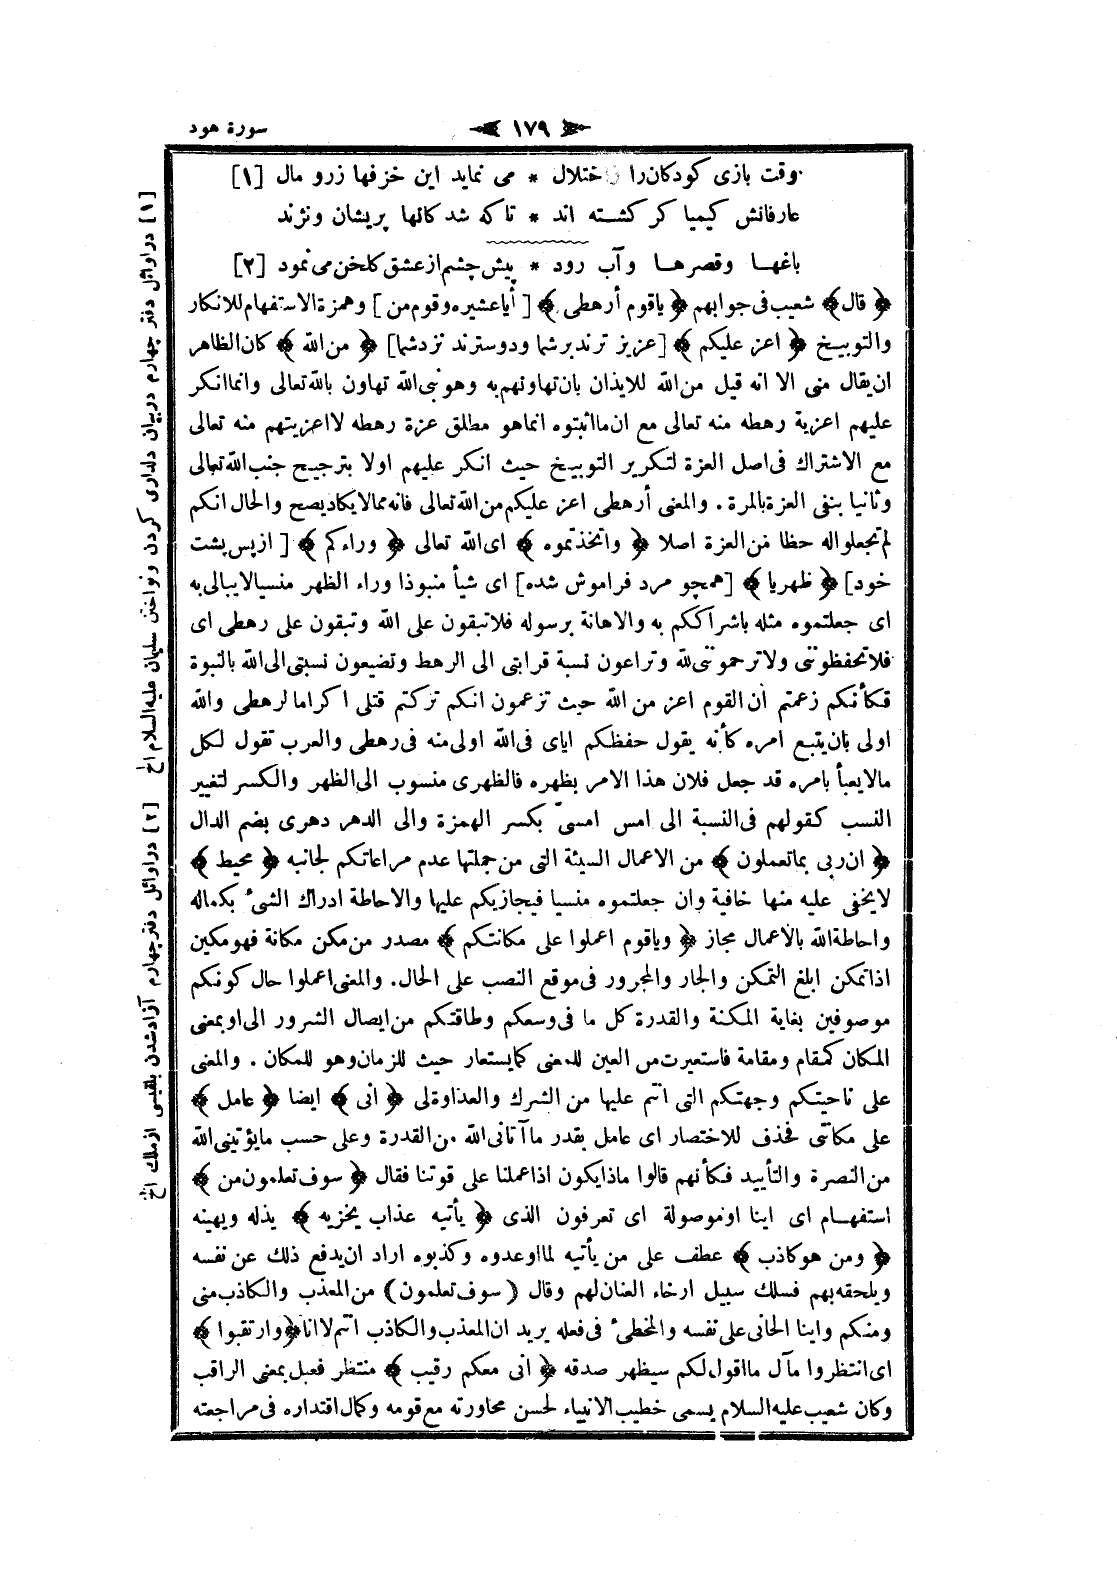 سورة هود
١٧٩
وقت بازی کودکان را ز اختلال * می نماید این خزفها زر و مال [١]
عارفانش کیمیا کر کشته اند * تا که شد کانها بر یشان و نژند
باغها وقصرها وآب رود * پیش چشم از عشق کلخن می نمود [٢]
﴿ قال ﴾ شعیب فی جوابهم ﴿ یاقوم أرهطی ﴾ [ أیا عشیره وقوم من ] وهمزة الاستفهام للانکار
والتوبیخ ﴿ اعز علیکم ﴾ [عزیز ترند برشما ودوسترند نزدشما] ﴿ من الله ﴾ کان الظاهر
ان یقال منی الا انه قیل من الله للایذان بان تهاونهم به وهو نبی الله تهاون بالله تعالی وانما انکر
علیهم اعزیة رهطه منه تعالی مع ان ما اثبتوه انما هو مطلق عزة رهطه لا اعزیتهم منه تعالی
مع الاشتراك فی اصل العزة لتکریر التوبیخ حیث انکر علیهم اولا بترجیح جنب الله تعالی
وثانیا بنفی العزة بالمرة . والمعنی أرهطی اعز علیکم من الله تعالی فانه مما لا یکاد یصح والحال انکم
لم تجعلوا له حظا من العزة اصلا ﴿ واتخذتموه ﴾ ای الله تعالی ﴿ وراءکم ﴾ [ ازپس پشت
خود] ﴿ ظهریا ﴾ [همچو مرد فراموش شده] ای شیأ منبوذا وراء الظهر منسیا لا یبالی به
ای جعلتموه مثله باشراککم به والاهانة برسوله فلا تبقون علی الله وتبقون علی رهطی ای
فلا تحفظوننی ولا ترحموننی لله وتراعون نسبة قرابتی الی الرهط وتضیعون نسبتی الی الله بالنبوة
فکأنکم زعمتم ان القوم اعز من الله حیث تزعمون انکم ترکتم قتلی اکراما لرهطی والله
اولی بان یتبع امره کأنه یقول حفظکم ایای فی الله اولی منه فی رهطی والعرب تقول لکل
مالا یعبأ بامره قد جعل فلان هذا الامر بظهره فالظهری منسوب الی الظهر والکسر لتغیر
النسب کقولهم فی النسبة الی امس امسیّ بکسر الهمزة والی الدهر دهری بضم الدال
﴿ ان ربی بما تعملون ﴾ من الاعمال السیئة التی من جملتها عدم مراعاتکم لجانبه ﴿ محیط ﴾
لا یخفی علیه منها خافیة وان جعلتموه منسیا فیجازیکم علیها والاحاطة ادراك الشیء بکماله
واحاطة الله بالاعمال مجاز ﴿ ویاقوم اعملوا علی مکانتکم ﴾ مصدر من مکن مکانة فهو مکین
اذا تمکن ابلغ التمکن والجار والمجرور فی موقع النصب علی الحال . والمعنی اعملوا حال کونکم
موصوفین بغایة المکنة والقدرة کل ما فی وسعکم وطاقتکم من ایصال الشرور الی او بمعنی
المکان کمقام ومقامة فاستعیرت من العین للمعنی کما یستعار حیث للزمان وهو للمکان . والمعنی
علی ناحیتکم وجهتکم التی انتم علیها من الشرك والعداوة لی ﴿ انی ﴾ ایضا ﴿ عامل ﴾
علی مکانتی فحذف للاختصار ای عامل بقدر ما آتانی الله من القدرة وعلی حسب ما یؤتینی الله
من النصرة والتأیید فکأنهم قالوا ماذا یکون اذا عملنا علی قوتنا فقال ﴿ سوف تعلمون من ﴾
استفهام ای اینا او موصولة ای تعرفون الذی ﴿ یأتیه عذاب یخزیه ﴾ یذله ویهینه
﴿ ومن هو کاذب ﴾ عطف علی من یأتیه لما اوعدوه وکذبوه اراد ان یدفع ذلك عن نفسه
ویلحقه بهم فسلك سبیل ارخاء العنان لهم وقال (سوف تعلمون) من المعذب والکاذب منی
ومنکم واینا الجانی علی نفسه والمخطیء فی فعله یرید ان المعذب والکاذب انتم لا انا ﴿ وارتقبوا ﴾
ای انتظروا مآل ما اقول لکم سیظهر صدقه ﴿ انی معکم رقیب ﴾ منتظر فعیل بمعنی الراقب
وکان شعیب علیه السلام یسمی خطیب الانبیاء لحسن محاورته مع قومه وکمال اقتداره فی مراجعته
[١] در اوائل دفتر چهارم در بیان دلداری کردن ونواختن سلیمان علیه السلام الخ
[٢] در اوائل دفتر چهارم آزاد شدن بلقیس از ملك الخ